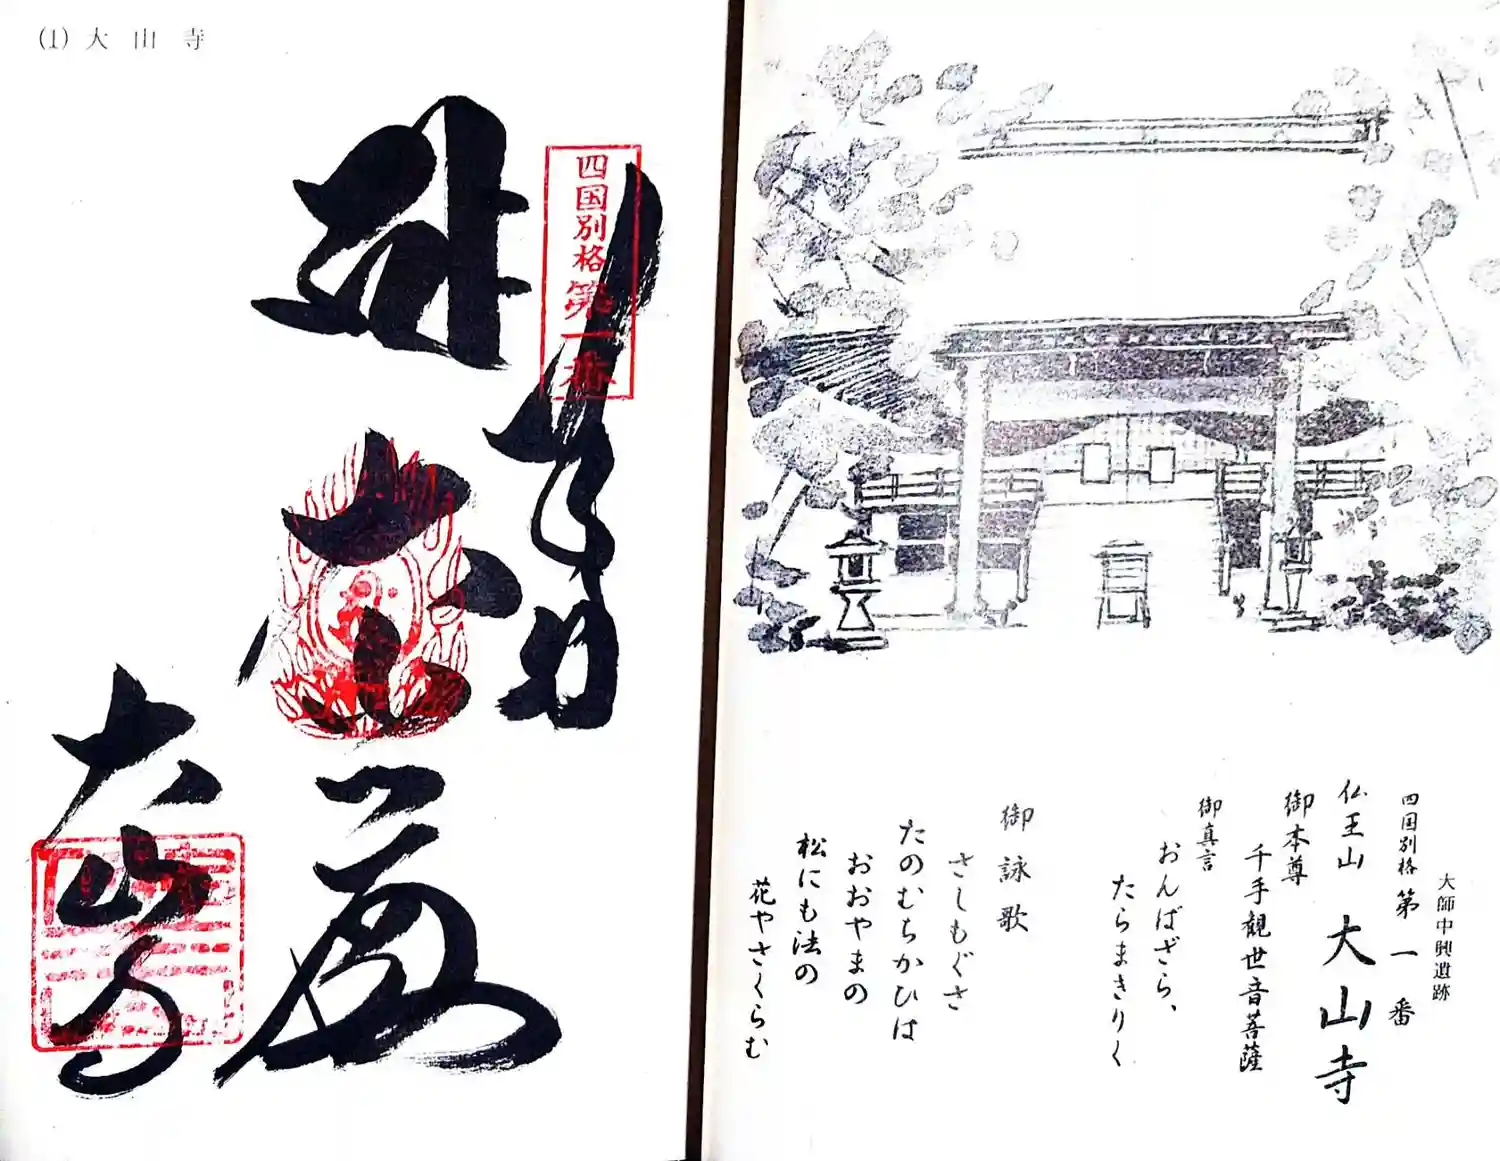 (1) 大山寺
四国別格第一番
奉拝
大山寺
大師中興遺跡
四国別格 第一番
仏王山 大山寺
御本尊
千手観世音菩薩
御真言
おんばざら、
たらまきりく
御詠歌
さしもぐさ
たのむちかひは
おおやまの
松にも法の
花やさくらむ